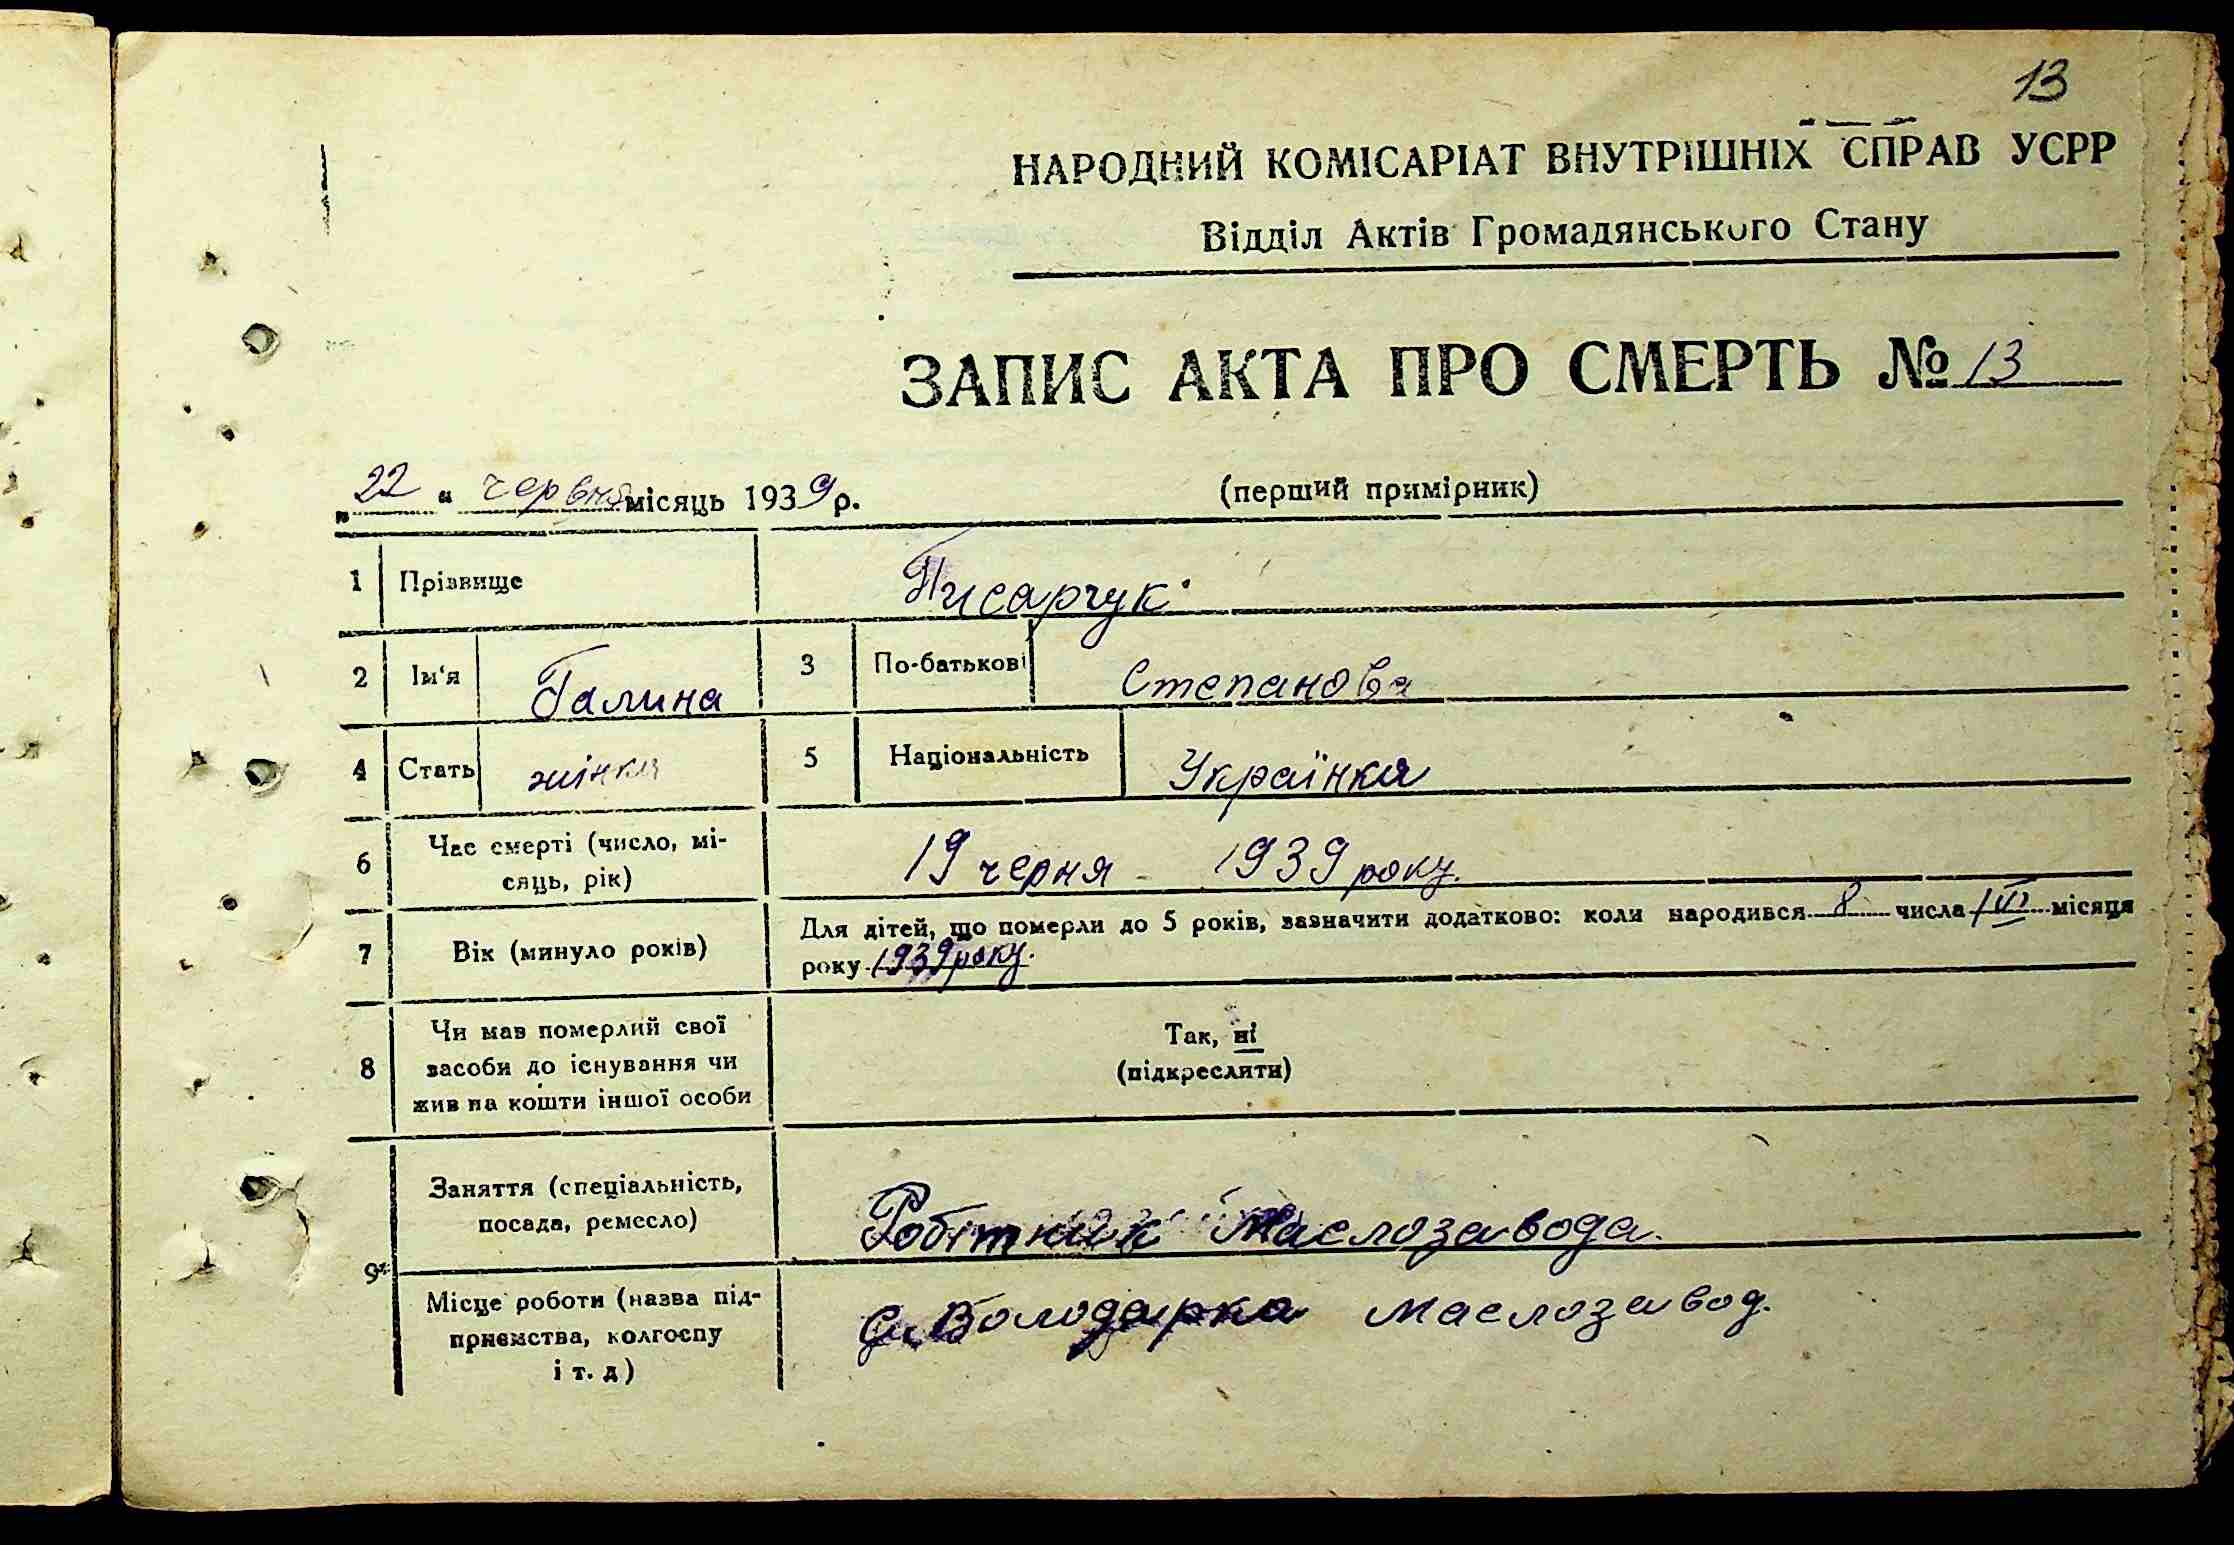 13
НАРОДНИЙ КОМІСАРІАТ ВНУТРІШНІХ СПРАВ УСРР
Відділ Актів Громадянського Стану
ЗАПИС АКТА ПРО СМЕРТЬ № 13
„22“ червня місяць 1939 р.
(перший примірник)
1 Прізвище Писарчук
2 Ім'я Галина 3 По-батькові Степанова
4 Стать жінка 5 Національність Українка
6 Час смерті (число, мі-
сяць, рік) 19 черня 1939 року.
7 Вік (минуло років) Для дітей, що померли до 5 років, зазначити додатково: коли народився 8 числа місяця
року 1939 року.
8 Чи мав померлий свої
засоби до існування чи
жив на кошти іншої особи
Так, ні
(підкреслити)
9 Заняття (спеціальність,
посада, ремесло) Робітник Маслозавода.
Місце роботи (назва під-
приємства, колгоспу
і т. д) с. Володарка маслозавод.